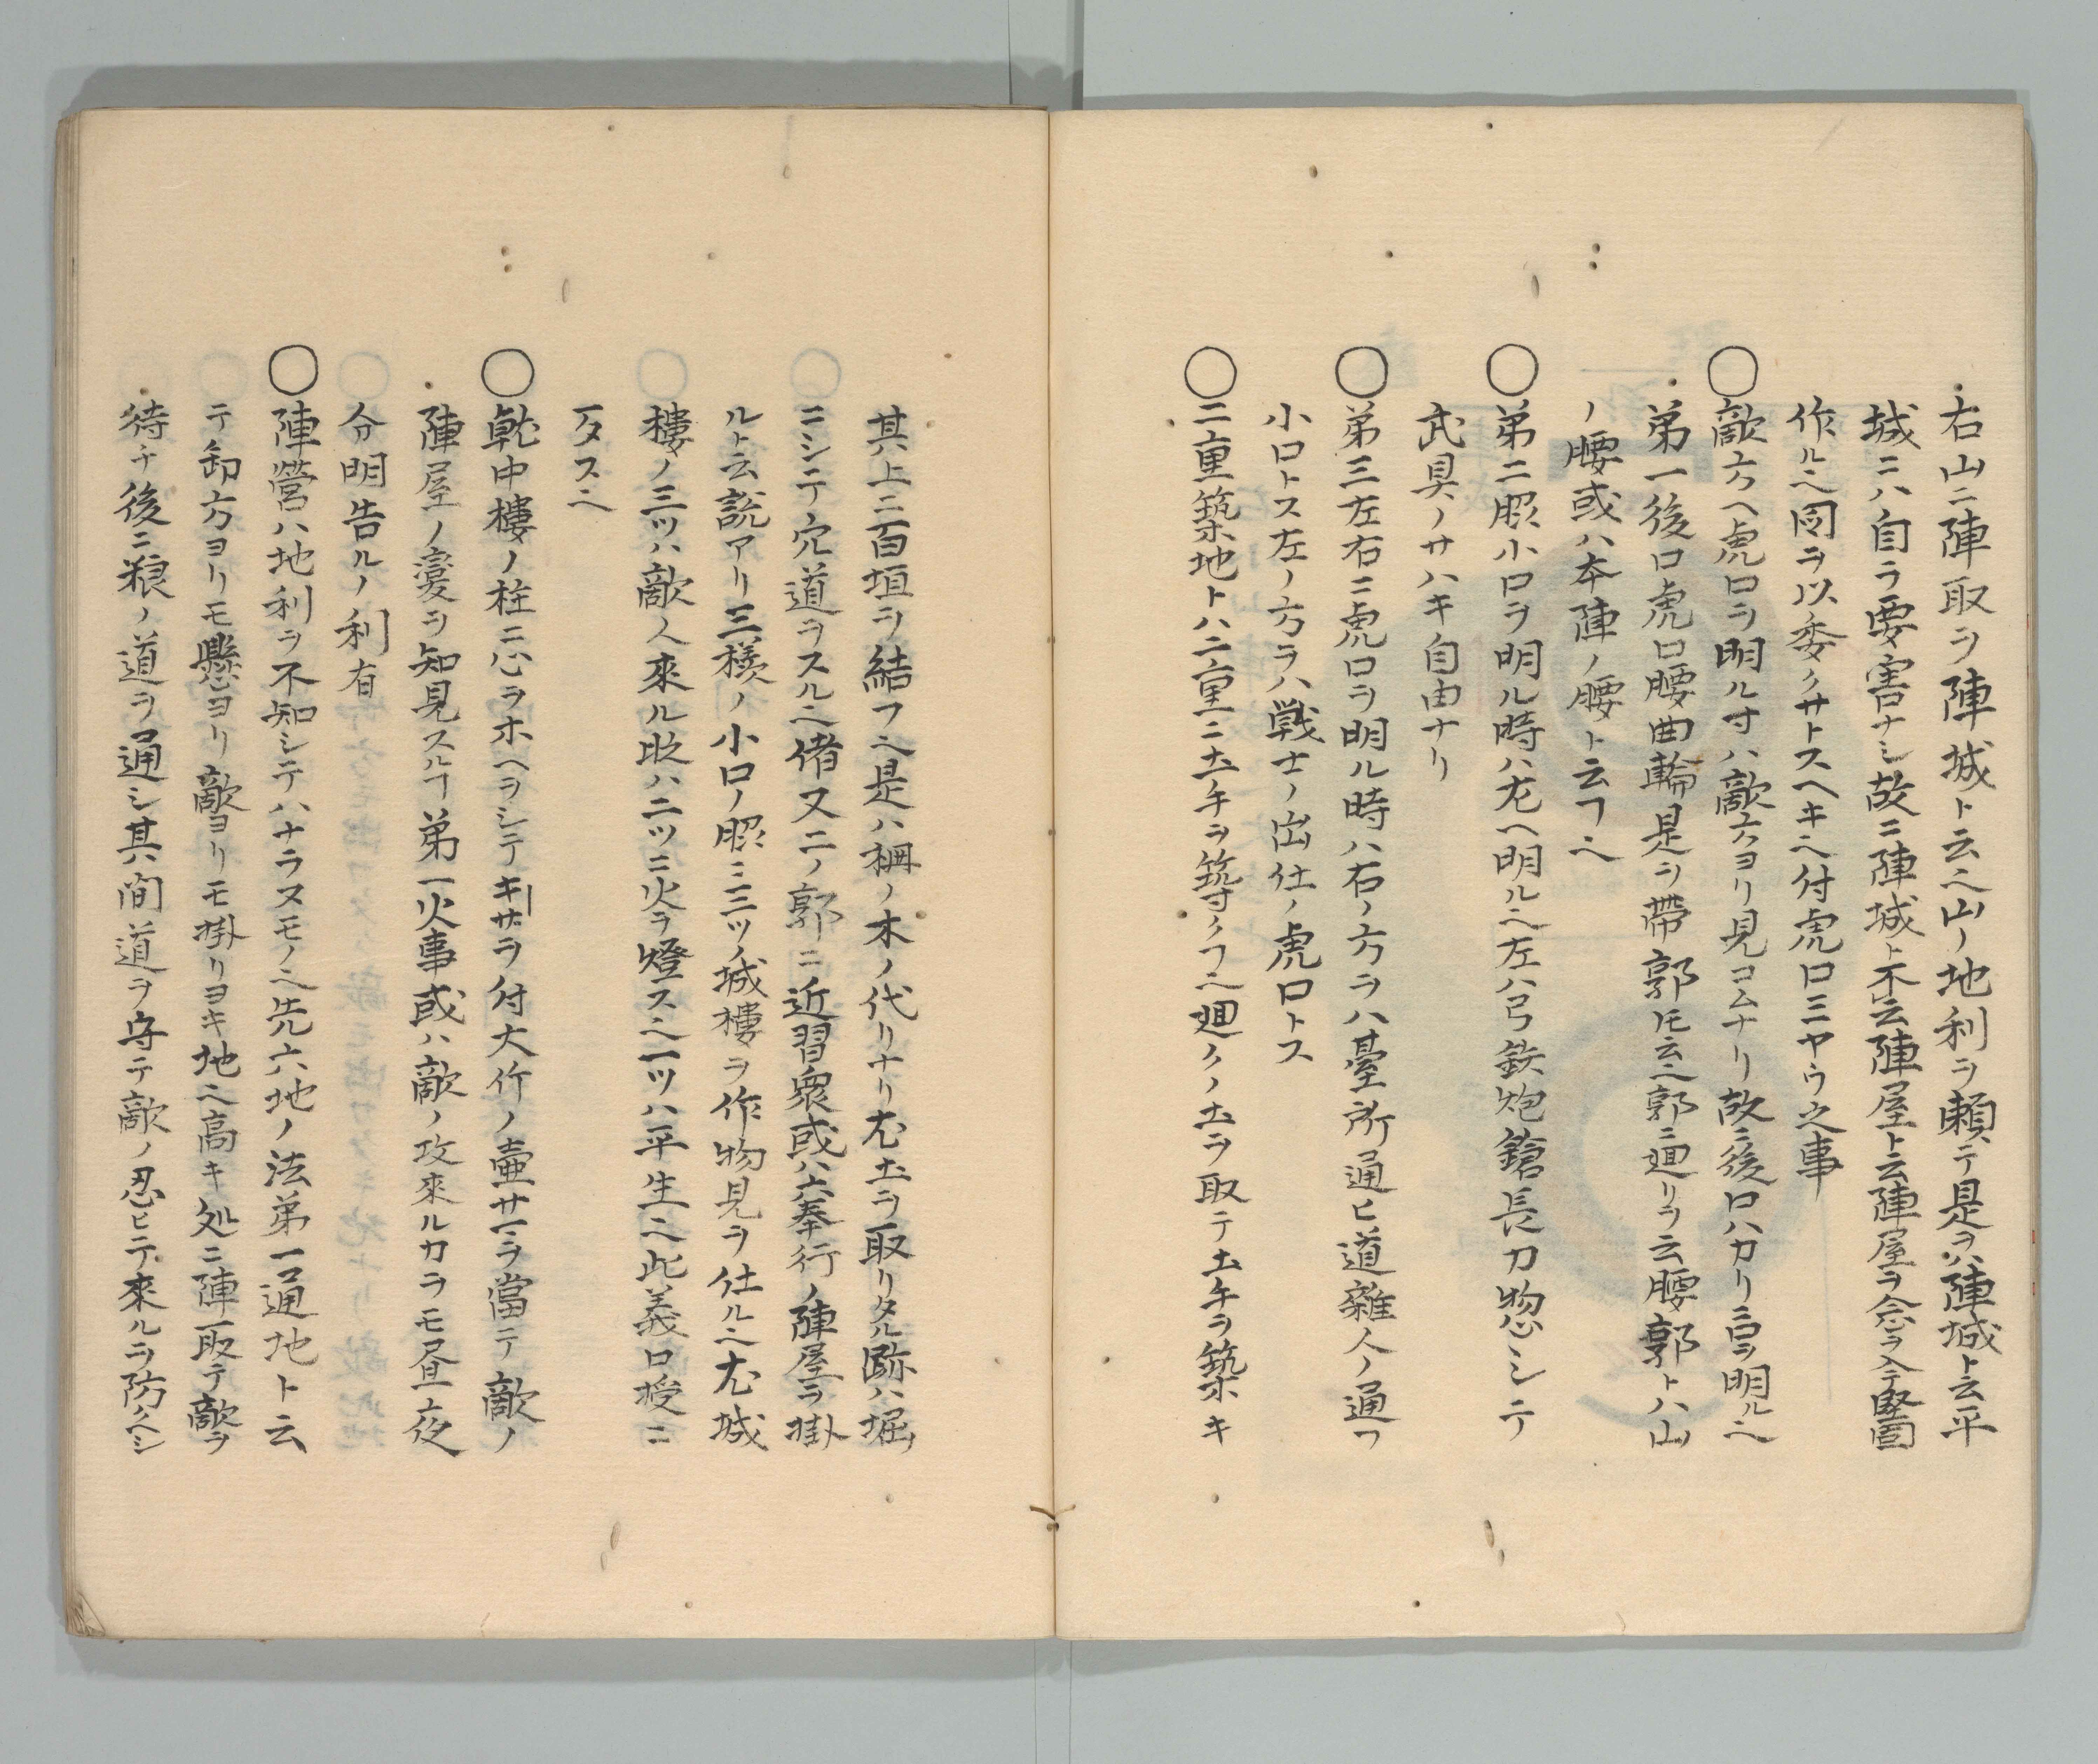 右山ニ陣取ヲ陣城ト云ヘ山ノ地利ヲ頼テ是ヲハ陣城ト云平
城ニハ自ラ要害ナシ故ニ陣城ト不云陣屋ト云陣屋ヲ念ヲ入テ堅固
作ルヘ図ヲ以委クサトスヘキヘ付虎口三ヤウ之事
〇敵方ヘ虎口ヲ明ル寸ハ敵方ヨリ見コムナリ故ニ後口ハカリニ口ヲ明ルヘ
第一後口虎口腰曲輪是ヲ帯郭トモ云ヘ郭ニ廻リヲ云腰郭トハ山
ノ腰或ハ本陣ノ腰ト云フヘ
〇第二脇小口ヲ明ル時ハ左ヘ明ルヘ左ハ弓鉄炮鎗長刀惣シテ
武具ノサハキ自由ナリ
〇第三左右ニ虎口ヲ明ル時ハ右ノ方ヲハ臺所通ヒ道雜人ノ通フ
小口トス左ノ方ヲハ戦士ノ出仕ノ虎口トス
〇二重築地トハ二重ニ土手ヲ築クノフヘ廻クノ土ヲ取テ土手ヲ築キ
其上ニ百垣ヲ結フヘ是ハ柵ノ木ノ代リナリ尤土ヲ取リタル跡ハ堀
ニシテ穴道ヲスルヘ偖又二ノ郭ニ近習衆或ハ六奉行ノ陣屋ヲ掛
ルト云説アリ三様ノ小口ノ脇ニ三ツノ城樓ヲ作物見ヲ仕ルヘ尤城
樓ノ三ツハ敵人來ル時ハ二ツニ火ヲ燈スヘ一ツハ平生ヘ此義口授ニ
アタスヘ
〇乾中樓ノ柱ニ心ヲホヘヲシテキザラ付大竹ノ壷サ一ヲ當テ敵ノ
陣屋ノ夏ヲ知見スルフ第一火事或ハ敵ノ攻來ルカラモ昼夜
分明告ルノ利有
〇陣營ハ地利ヲ不知シテハナラヌモノヘ先六地ノ法第一通地ト云
テ御方ヨリモ懸ヨリ敵ヨリモ掛リヨキ地ヘ高キ処ニ陣取テ敵ヲ
待チ後ニ粮ノ道ヲ通シ其間道ヲ守テ敵ノ忍ヒテ來ルヲ防クヘシ